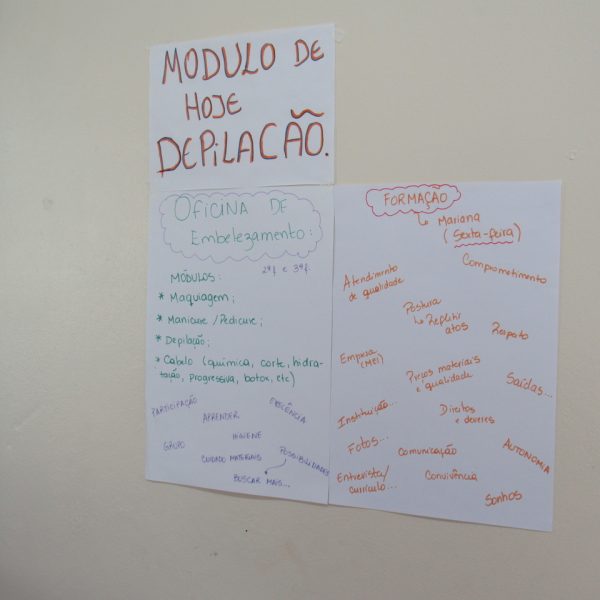 MODULO DE
HOJE
DEPILACÃO.
OFICINA DE
Embelezamento:
2ªf. e 3ªf.
MÓDULOS:
* Maquiagem;
* Manicure/Pedicure;
* Depilação;
* Cabelo (química, corte, hidra-
tação, progressiva, botox, etc)
PARTICIPAÇÃO
APRENDER
EXCELÊNCIA
GRUPO
HIGIENE
CUIDADO MATERIAIS
POSSIBILIDADES
BUSCAR MAIS...
FORMAÇÃO
Mariana
(Sexta-feira)
Comprometimento
Atendimento
de qualidade
Postura
Refletir
atos
Respeito
Empresa
(MEI)
Preços materiais
e qualidade
Saídas...
Instituição...
Direitos
e deveres
Fotos...
Comunicação
AUTONOMIA
Entrevista/
currículo...
Convivência
Sonhos